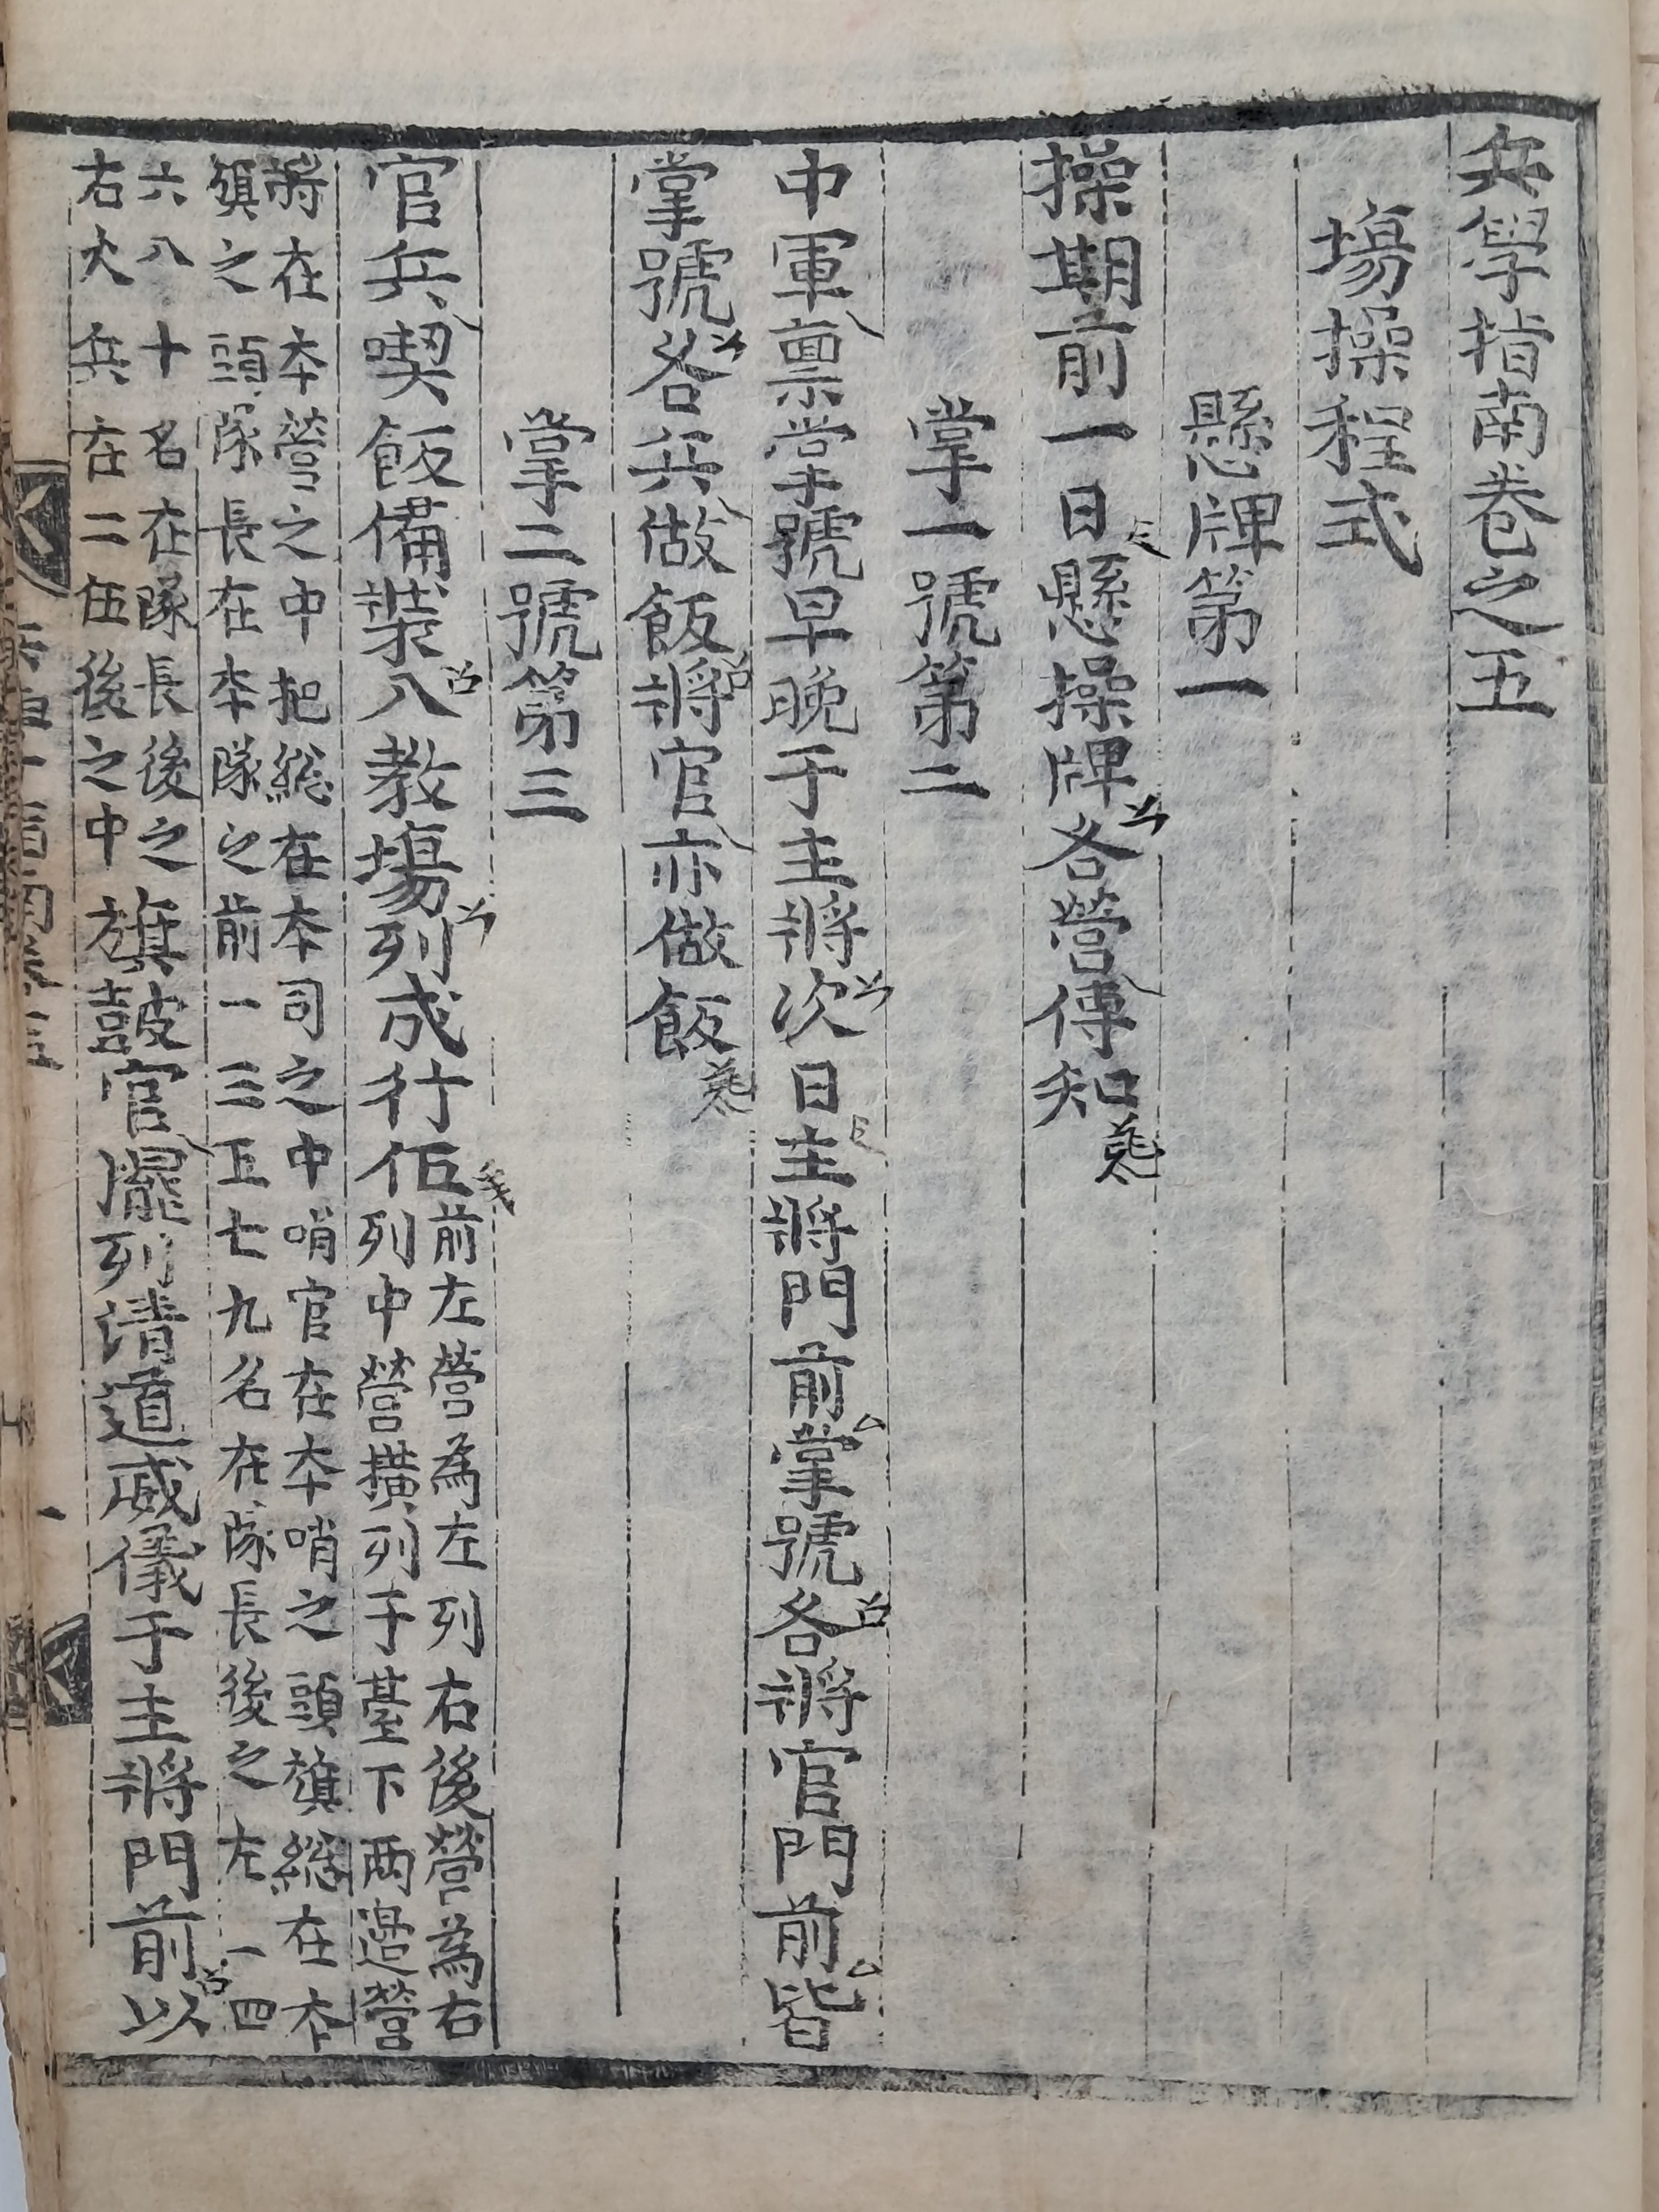 兵學指南卷之五
場操程式
懸牌第一
操期前一日懸操牌各營傳知
掌一號第二
中軍禀掌號早晚于主將次日主將門前掌號各將官門前皆
掌號各兵做飯將官亦做飯
掌二號第三
官兵喫飯備裝入教場列成行伍
前左營為左列右後營為右
列中營橫列于臺下兩邉營
將在本營之中把総在本司之中哨官在本哨之頭旗総在本
旗之頭隊長在本隊之前一三五七九名在隊長後之左二四
六八十名在隊長後之
右火兵在二伍後之中
旗鼓官擺列清道威儀于主將門前以